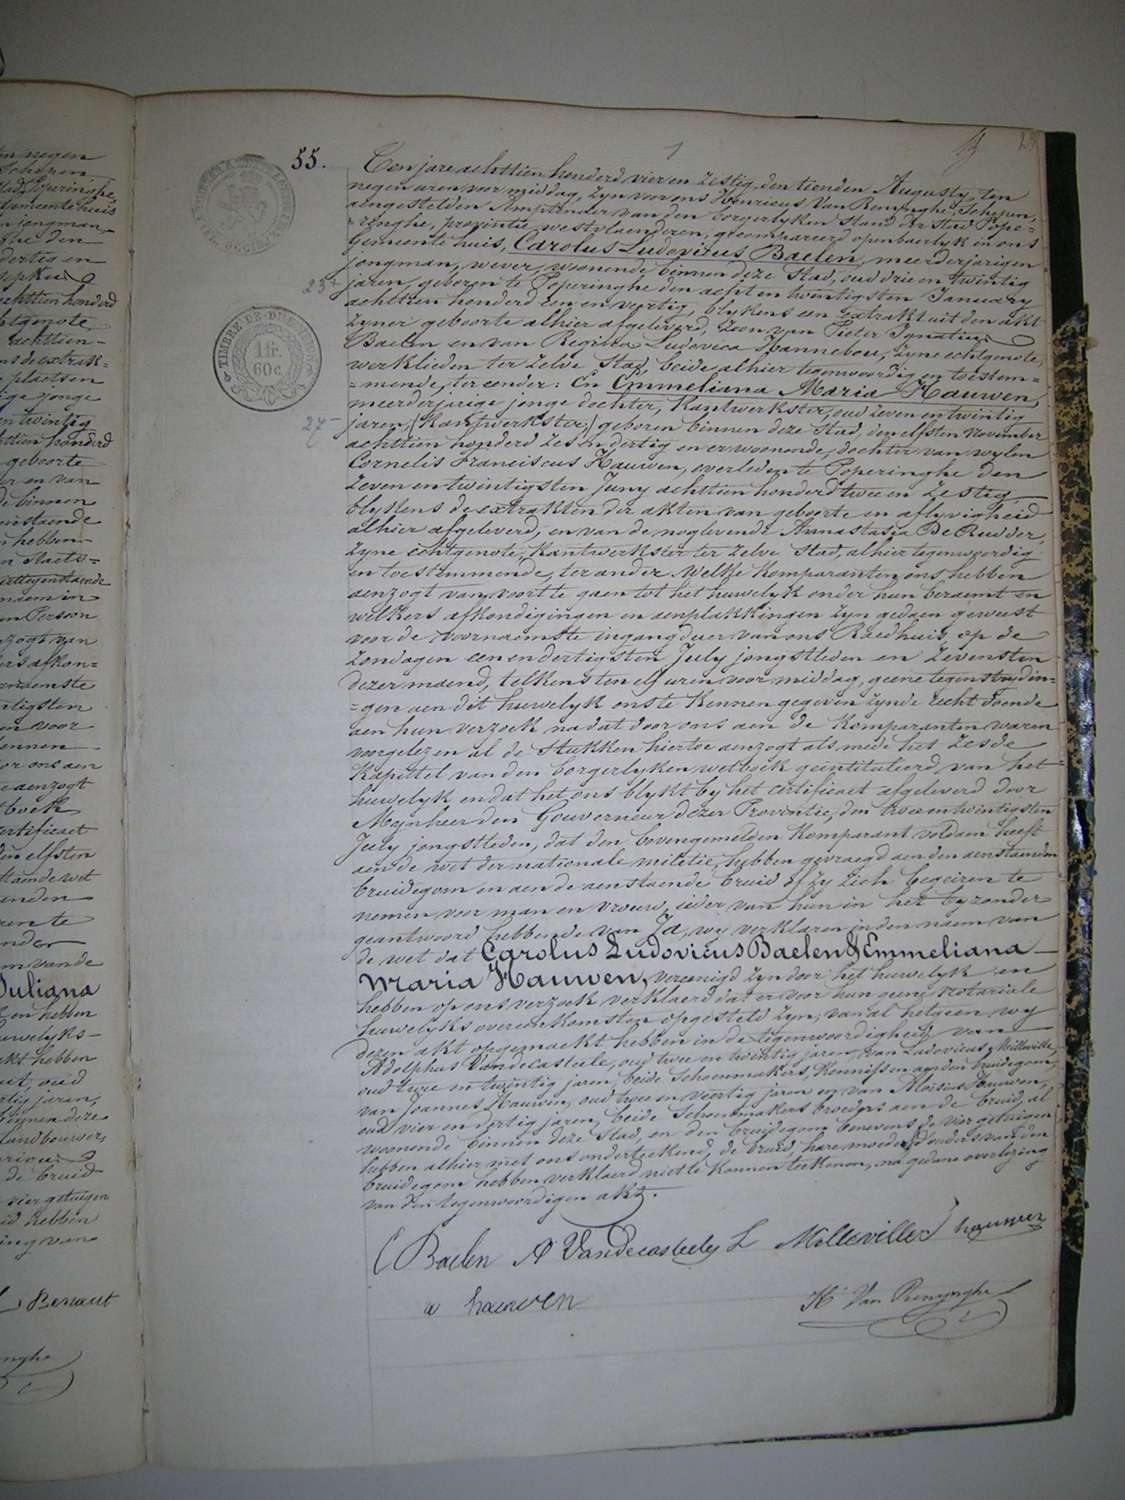 55.
Ten jare achttien honderd vier en zestig, den tienden Augusty, ten
negen uren voor middag, zyn voor ons Henricus Van Renynghe, Schepen,
aengestelden Amptenaer van den borgerlyken stand der stad Pope-
=ringhe, provintie westvlaenderen; gecompareerd openbaerlyk in ons
gemeente huis, Carolus Ludovicus Baelen, meerderjarigen
jongman, wever, woonende binnen deze stad, oud drie en twintig
23
jaren, geboren te Poperinghe den acht en twintigsten January
achttien honderd een en veertig, blykens een extrakt uit den akt
zyner geboorte alhier afgeleverd, zoon van Pieter Ignatius
Baelen en van Regina Ludovica Hannebou, zyne echtgenote,
werklieden ter zelve stad, beide alhier tegenwoordig en toestem-
=mende, ter eender: En Emmeliana Maria Hauwen,
meerderjarige jonge dochter, kantwerkster, oud zeven en twintig
27
jaren, (kantwerkster,) geboren binnen deze stad, den elfsten November
achttien honderd zes en dertig en er woonende, dochter van wylen
Cornelis Franciscus Hauwen, overleden te Poperinghe den
zeven en twintigsten Juny achttien honderd twee en zestig,
blykens de extrakten der akten van geboorte en aflyvigheid
alhier afgeleverd, en van de noglevende Annastasia De Rudder,
zyne echtgenote, kantwerkster ter zelve stad, alhier tegenwoordig
en toestemmende, ter ander. Welke komparanten ons hebben
aenzogt van voort te gaen tot het huwelyk onder hun beraemt en
welkers afkondigingen en aenplakkingen zyn gedaen geweest
voor de voornaemste ingangdeur van ons Raedhuis, op de
zondagen een en dertigsten July jongstleden en zevensten
dezer maend, telkens ten elf uren voor middag, geene tegenstrydin-
=gen aen dit huwelyk ons te kennen gegeven zynde recht doende
aen hun verzoek na dat door ons aen de komparanten waren
voorgelezen al de stukken hiertoe aenzogt als mede het zesde
Kapittel van den borgerlyken wetboek geintituleerd, van het
huwelyk, en dat het ons blykt by het certificaet afgeleverd door
Mynheer den Gouverneur dezer Proventie, den twee en twintigsten
July jongstleden, dat den bovengemelden komparant voldaen heeft
aen de wet der nationale militie, hebben gevraegd aen den aenstaenden
bruidegom en aen de aenstaende bruid of zy zich begeiren te
nemen voor man en vrouw, ieder van hun in het byzonder
geantwoord hebbende van Ja, wy verklaren in den naem van
de wet dat Carolus Ludovicus Baelen & Emmeliana
Maria Hauwen, vereenigd zyn door het huwelyk en
hebben op ons verzoek verklaerd dat er voor hun geene notariale
huwelyks overeenkomsten opgesteld zyn; van al hetgeen wy
dezen akt opgemaekt hebben in de tegenwoordigheid van
Adolphus Vandecasteele, oud twee en twintig jaren, van Ludovicus Milleville,
oud twee en twintig jaren, beide schoenmakers, kennissen aen den bruidegom,
van Joannes Hauwen, oud twee en veertig jaren en van Aloisius Hauwen,
oud vier en dertig jaren, beide schoenmakers broeders aen de bruid, al
woonende binnen deze stad, en den bruidegom benevens de vier getuigen
hebben alhier met ons onderteekend, de bruid, hare moeder en d'ouders van den
bruidegom hebben verklaerd niet te kunnen teekenen, na gedane voorlezing
van den tegenwoordigen akt.
C Baelen A Vandecasteele L Milleville J hauwen
a hauwen
H Van Renynghe
TIMBRE DE DIMENSION
1 fr.
60 c.
Juliana